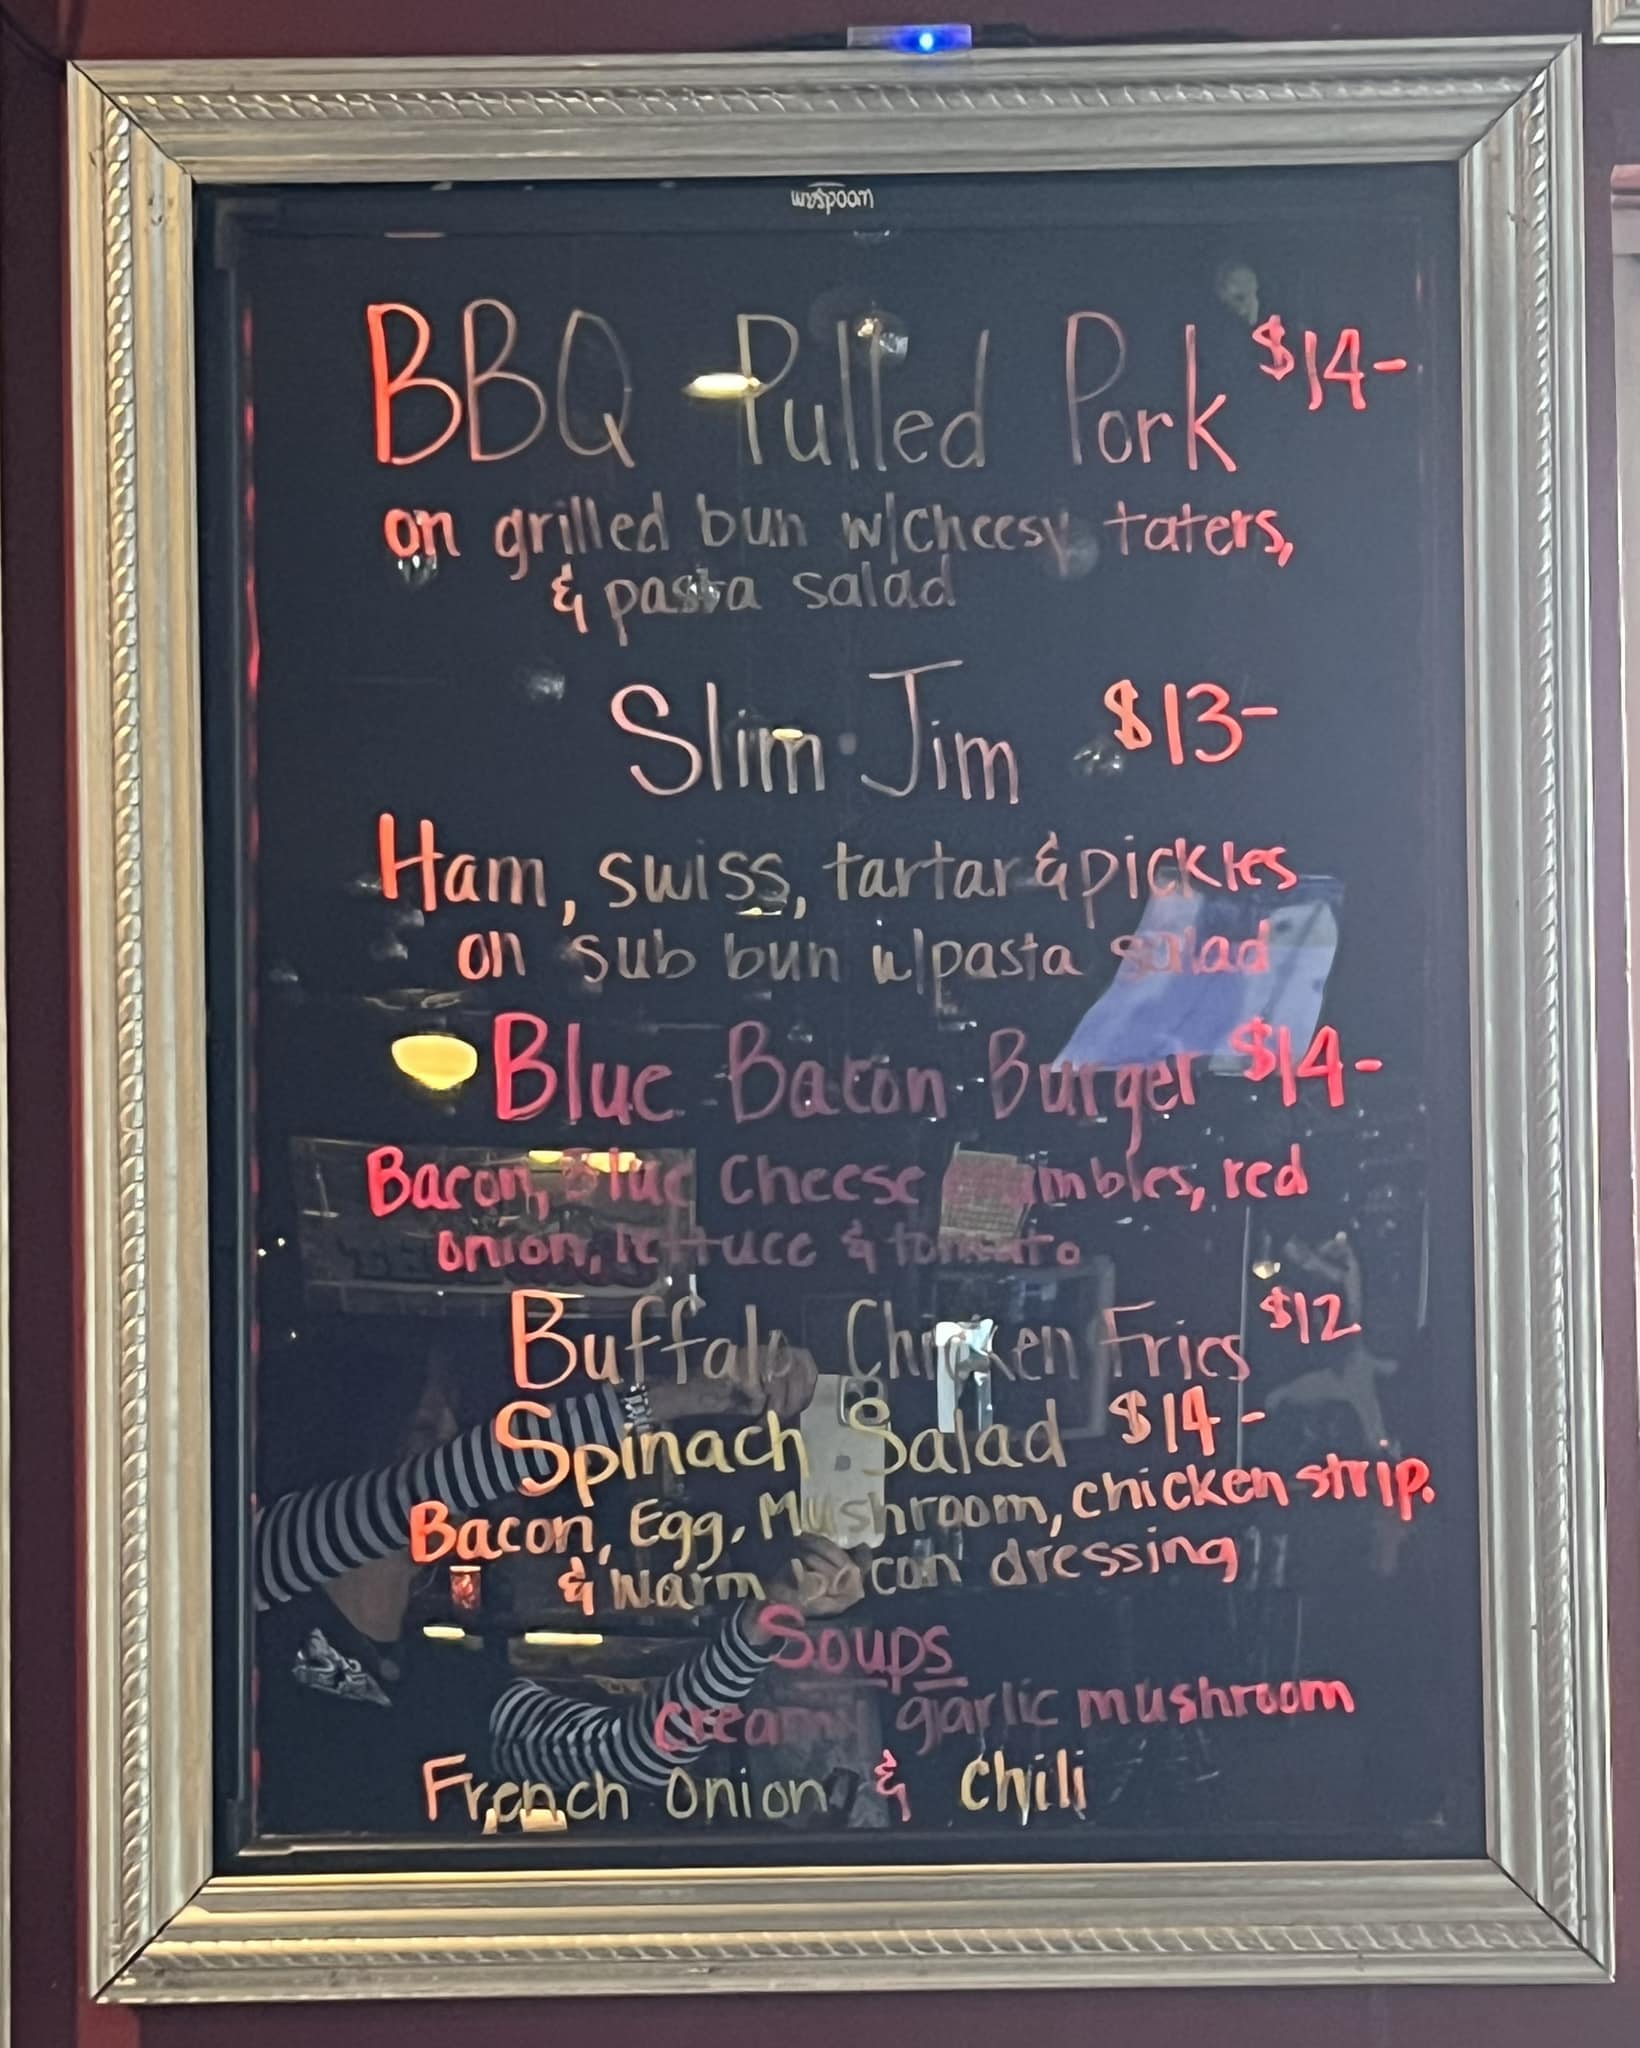 woodsam
BBQ Pulled Pork $14-
on grilled bun w/cheesy taters,
& pasta salad
Slim Jim $13-
Ham, swiss, tartar & pickles
on sub bun w/pasta salad
Blue Bacon Burger $14-
Bacon, Blue Cheese crumbles, red
onion, lettuce & tomato
Buffalo Chicken Fries $12
Spinach Salad $14-
Bacon, Egg, Mushroom, chicken strip.
& Warm bacon dressing
Soups
creamy garlic mushroom
French Onion & Chili